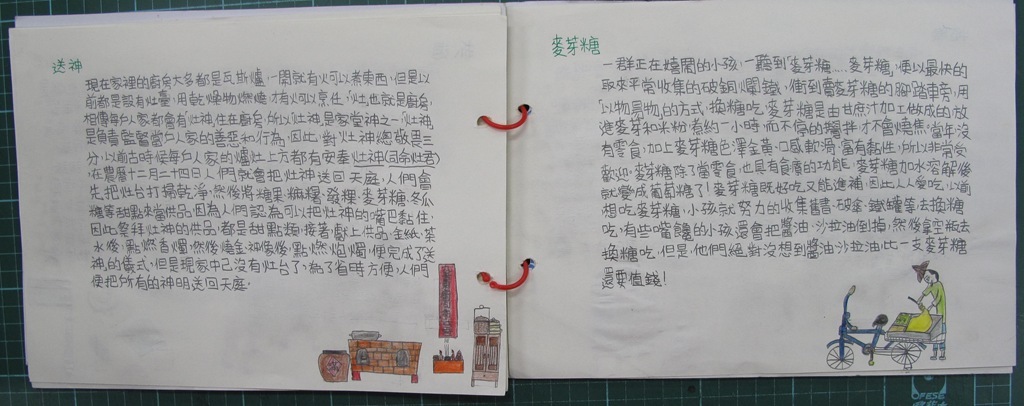 送神
現在家裡的廚房大多都是瓦斯爐,一開就有火可以煮東西,但是以
前都是設有灶臺,用乾燥物燃燒才有火可烹任,灶,也就是廚房,
相傳每戶人家都會有灶神住在廚房,所以灶神是家堂神之一,灶神
是負責監督當戶人家的善惡和行為,因此,對灶神總敬畏三
分,以前古時候每戶人家的爐灶上方都有安奉灶神(司命灶君)
,在農曆十二月二十四日人們就會把灶神送回天庭,人們會
先把灶台打掃乾淨,然後將糖果、麻糬、發粿、麥芽糖、冬瓜
糖等甜點來當供品,因為人們認為可以把灶神的嘴巴黏住,
因此祭拜灶神的供品,都是甜點類,接著獻上供品、金紙、茶
水後,點燃香燭,然後燒金、神像後,點燃焰燭,便完成了送
神的儀式,但是現家中已沒有灶台了,為了省時方便,人們
便把所有的神明送回天庭,
麥芽糖
一群正在嬉鬧的小孩,一聽到「麥芽糖.....麥芽糖」,便以最快的
取來平常收集的破銅、爛鐵,衝到賣麥芽糖的腳踏車旁,用
「以物易物的方式」換糖吃,麥芽糖是由甘庶汁加工做成的放
進麥芽和米粉,看約一小時,而不停的攪拌才不會燒焦,當年沒
有零食,加上麥芽糖色澤金黃、口感軟滑,富有黏性,所以非常受
歡迎,麥芽糖除了當零食,也具有食療的功能,麥芽糖加水溶解後
就變成葡萄糖了!麥芽糖既好吃又能進補,因此人人愛吃,以前
想吃麥芽糖,小孩就努力的收集舊書、破傘、鐵罐等去換糖
吃,有些嘴饞的小孩還會把醬油、沙拉油倒掉,然後拿空瓶去
換糖吃,但是,他們絕對沒想到醬油、沙拉油,比一支麥芽糖
還要值錢!
OFESE